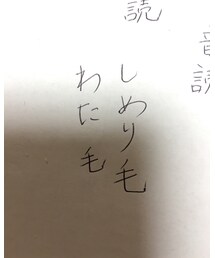 音読
読
しめり毛
わた毛